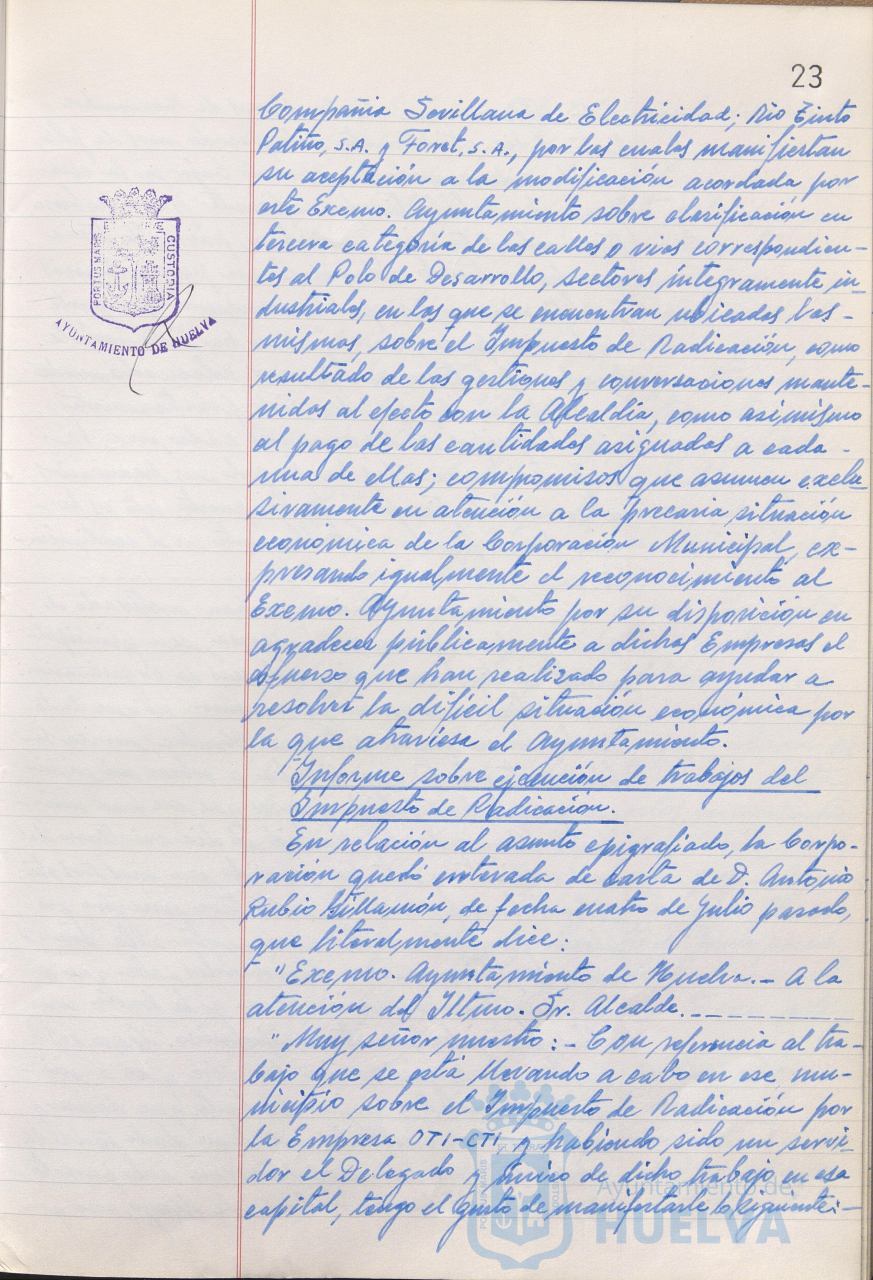 23
Compañía Sevillana de Electricidad; Rio Tinto
Patiño, S.A. y Foret, S.A., por las cuales manifiestan
su aceptación a la modificación acordada por
este Excmo. Ayuntamiento sobre clasificación en
tercera categoría de las calles o vias correspondien-
tes al Polo de Desarrollo, sectores íntegramente in-
dustriales, en los que se encuentran ubicadas las-
mismas, sobre el Impuesto de Radicación, como
resultado de las gestiones y conversaciones mante-
nidas al efecto con la Alcaldía, como asimismo
al pago de las cantidades asignadas a cada -
una de ellas; compromisos que asumen exclu-
sivamente en atención a la precaria situación
económica de la Corporación Municipal, ex-
presando igualmente el reconocimiento al
Excmo. Ayuntamiento por su disposición en
agradecer públicamente a dichas Empresas el
esfuerzo que han realizado para ayudar a
resolver la difícil situación económica por
la que atraviesa el Ayuntamiento.
Informe sobre ejecución de trabajos del
Impuesto de Radicación.
En relación al asunto epigrafiado, la Corpo-
ración quedó enterada de carta de D. Antonio
Rubio de fecha cuatro de Julio pasado,
que literalmente dice:
"Excmo. Ayuntamiento de Huelva.- A la
atención del Iltmo. Sr. Alcalde.-
"Muy señor nuestro:- Con referencia al tra-
bajo que se está llevando a cabo en ese mu-
nicipio sobre el Impuesto de Radicación por
la Empresa OTI-CTI y habiendo sido un servi-
dor el Delegado y único de dicho trabajo en esa
capital, tengo el gusto de manifestarle lo siguiente:-
PORTUS MARIS
CUSTODIA
AYUNTAMIENTO DE HUELVA
Ayuntamiento de
HUELVA